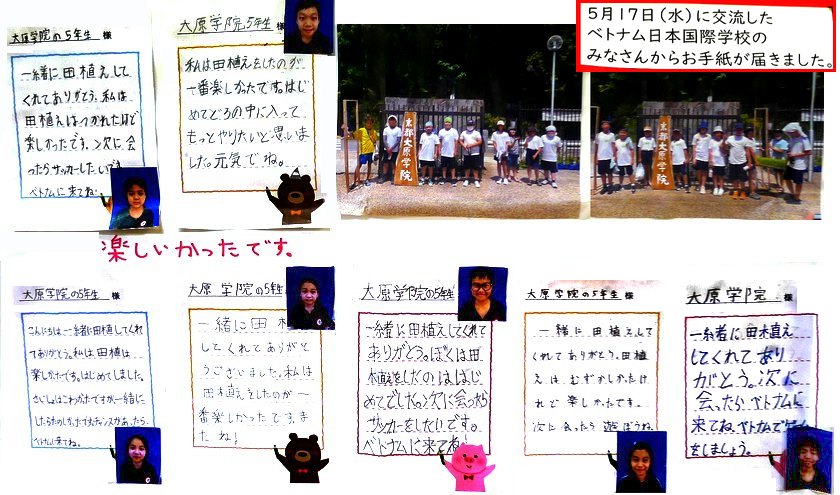 5月17日(水)に交流した
ベトナム日本国際学校の
みなさんからお手紙が届きました。
大原学院の5年生 様
一緒に田植えして
くれてありがとう。私は
田植えはつかれたけど
楽しかたです。次に会
ったらサッカーしたいです。
ベトナムに来てね。
大原学院の5年生
私は田植えをしたのが
一番楽しかたです。はじ
めてどろの中に入って
もっとやりたいと思いま
した。元気でね。
京都大原学院
京都大原学院
楽しいかったです。
大原学院の5年生 様
こんにちは一緒に田植してくれ
てありがとう。私は田植は
楽しかたです。はじめてしました。
さいしょはこわかたですが一緒に
したらたのしかたです。チャンスがあったら
ベトナムに来てね。
大原学院の5年生
一緒に田植
してくれてありがと
うございました。私は
田植えをしたのが一
番楽しかったです。ま
たね!
大原学院の5年生
一緒に田植えしてくれて
ありがとう。ぼくは田
植えをしたのははじ
めてでした。次に会ったら
サッカーをしたいです。
ベトナムに来てね!
大原学院の5年生 様
一緒に田植えして
くれてありがとう。田植
えはむずかしかたけ
れど楽しかたです。
次に会ったら遊ぼうね。
大原学院 様
一緒に田植え
してくれてあり
がとう。次に
会ったらベトナムに
来てね。ベトナムでゲーム
をしましょう。